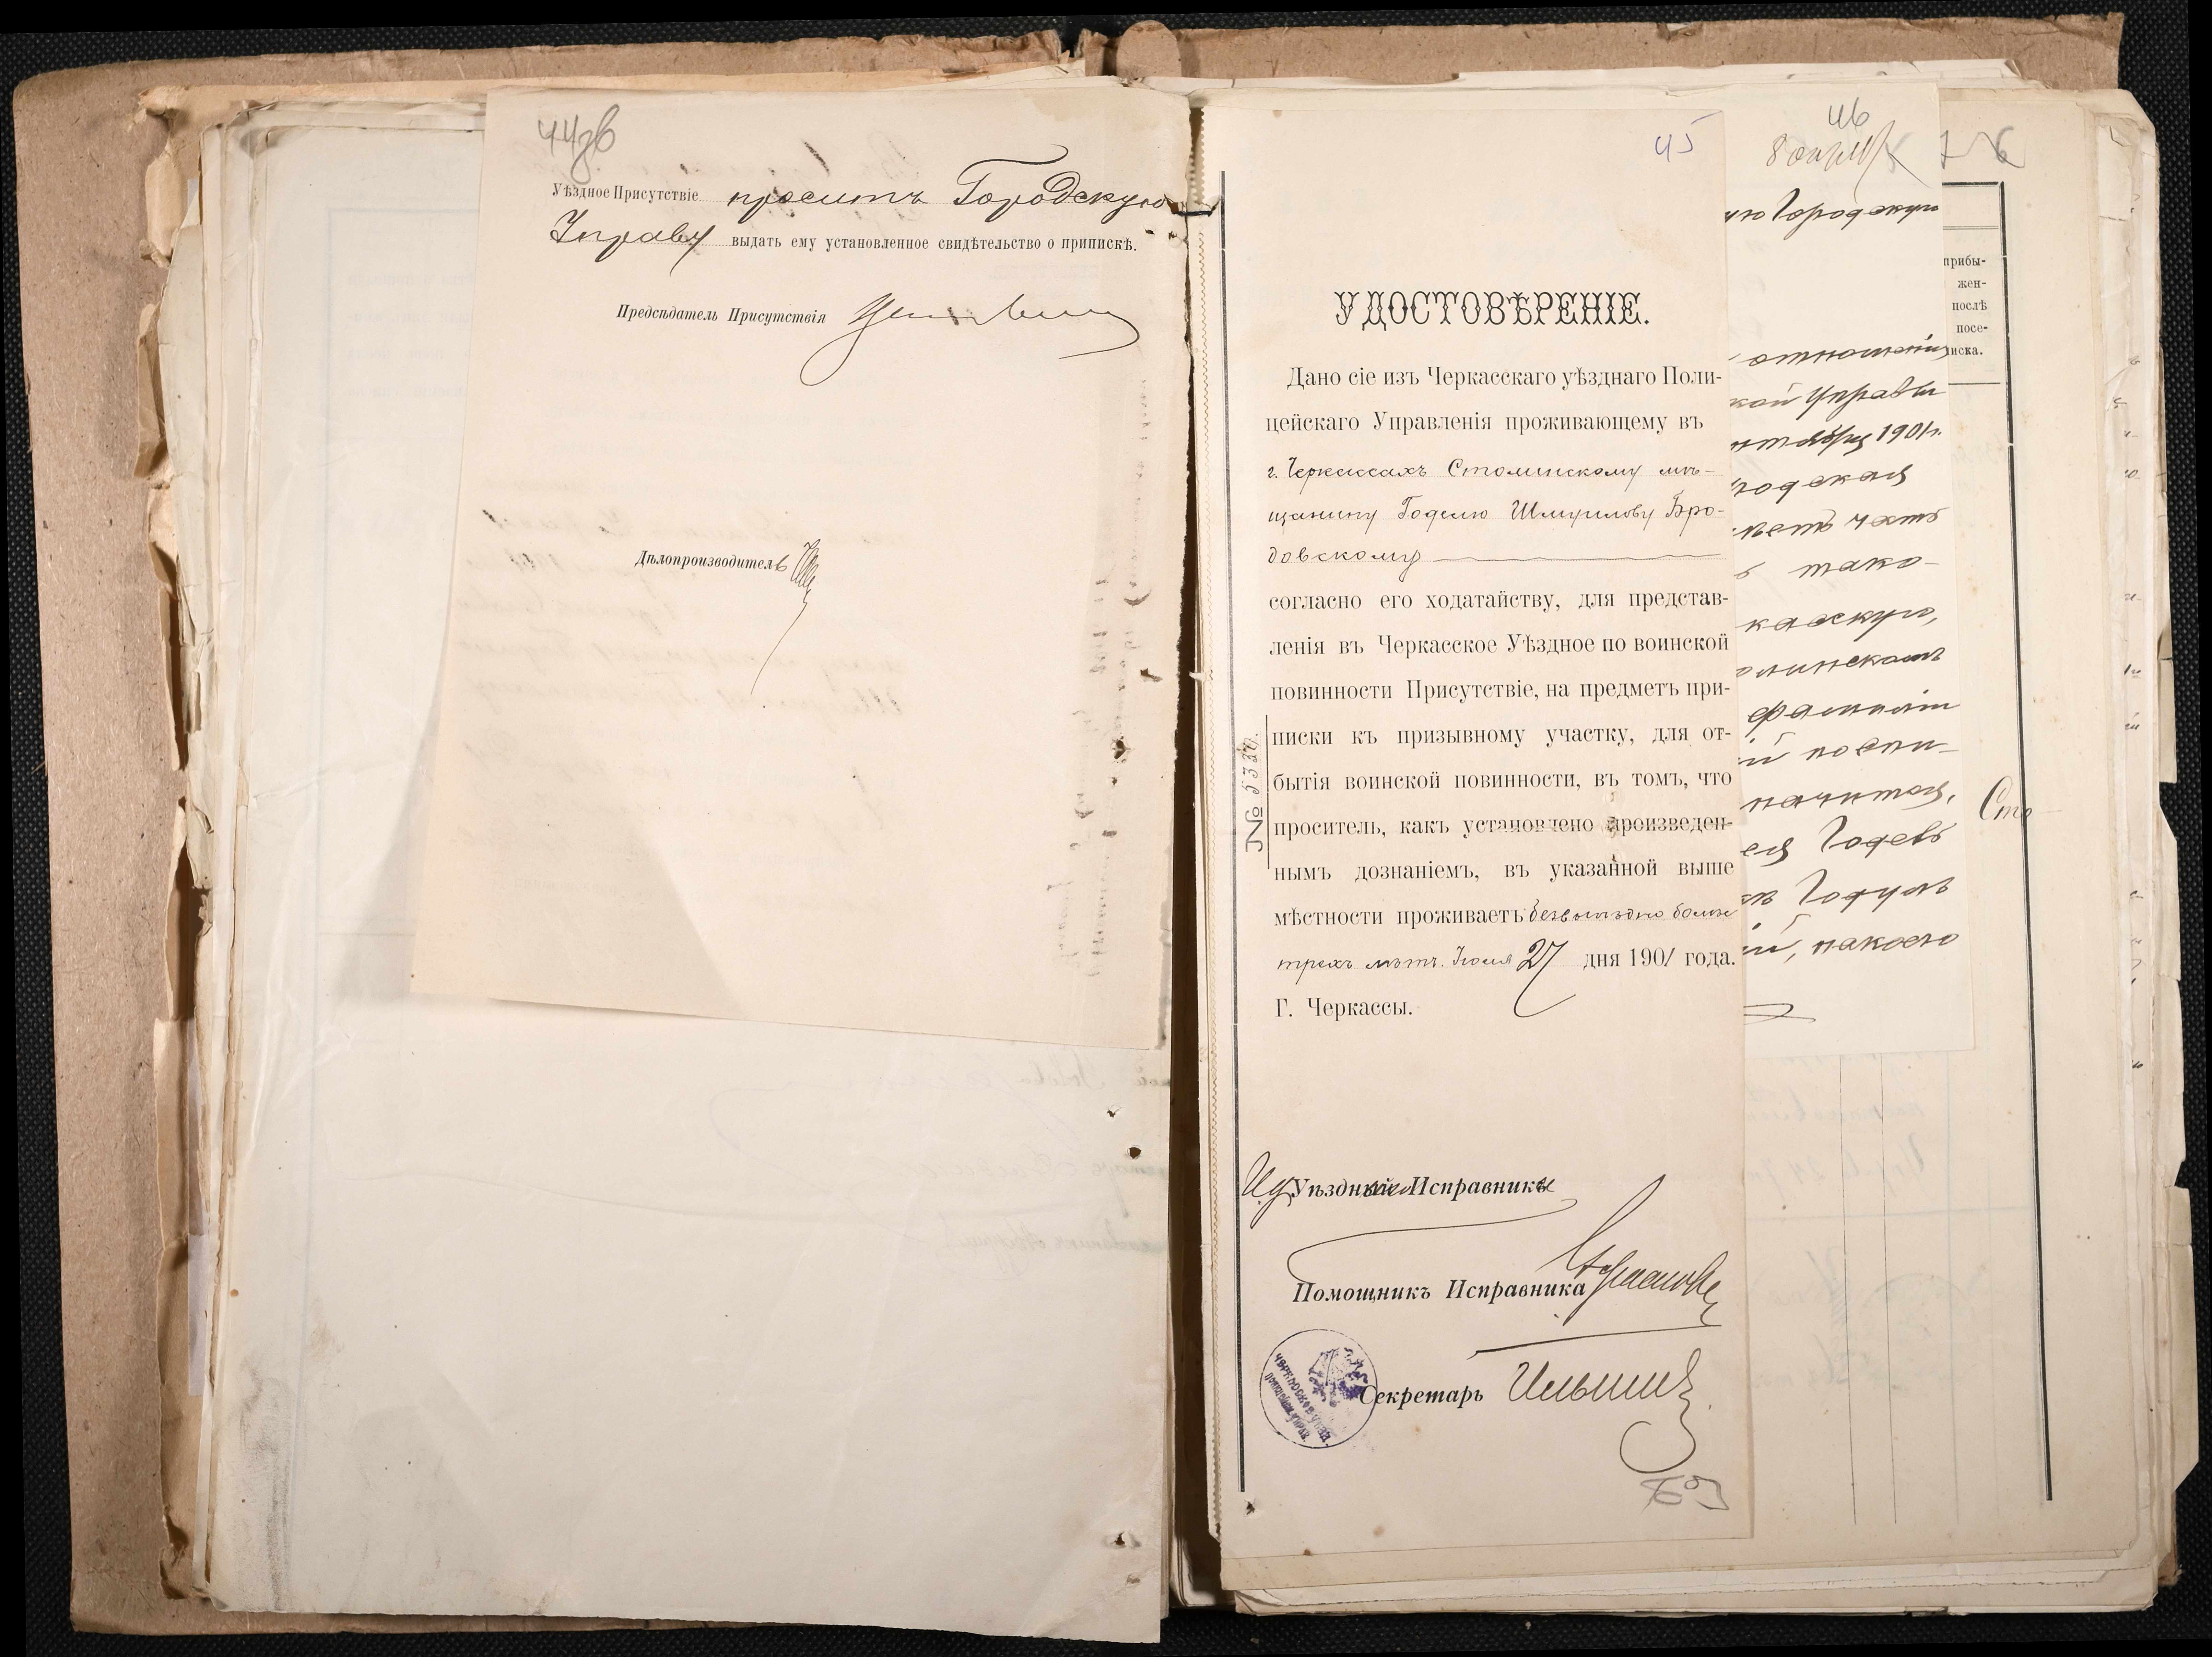 44об
Уѣздное Присутствіе проситъ Городскую
Управу выдать ему установленное свидѣтельство о припискѣ.
Предсѣдатель Присутствія
Дѣлопроизводитель
45
УДОСТОВѢРЕНІЕ.
Дано сіе изъ Черкасскаго уѣзднаго Поли-
цейскаго Управленія проживающему въ
г. Черкассахъ Стоминскому мѣ-
щанину Годелю Шмулову Бро-
довскому
согласно его ходатайству, для представ-
ленія въ Черкасское Уѣздное по воинской
повинности Присутствіе, на предметъ при-
писки къ призывному участку, для от-
бытія воинской повинности, въ томъ, что
проситель, какъ установлено произведен-
нымъ дознаніемъ, въ указанной выше
мѣстности проживаетъ безвыѣздно болѣе
трехъ лѣтъ. Іюля 27 дня 1901 года.
Г. Черкассы.
№ 5320.
И.д. Уѣзднаго Исправника
Помощникъ Исправника
Секретарь Ильин
46
ю Городскую
отношенія
кой Управы
нтября 1901 г.
родская
ѣетъ честь
ъ тако-
каскую,
фамиліи
й поспи-
начится,
ся Годель
Годуль
й, накоего
прибы-
жен-
послѣ
посе-
иска.
Сто